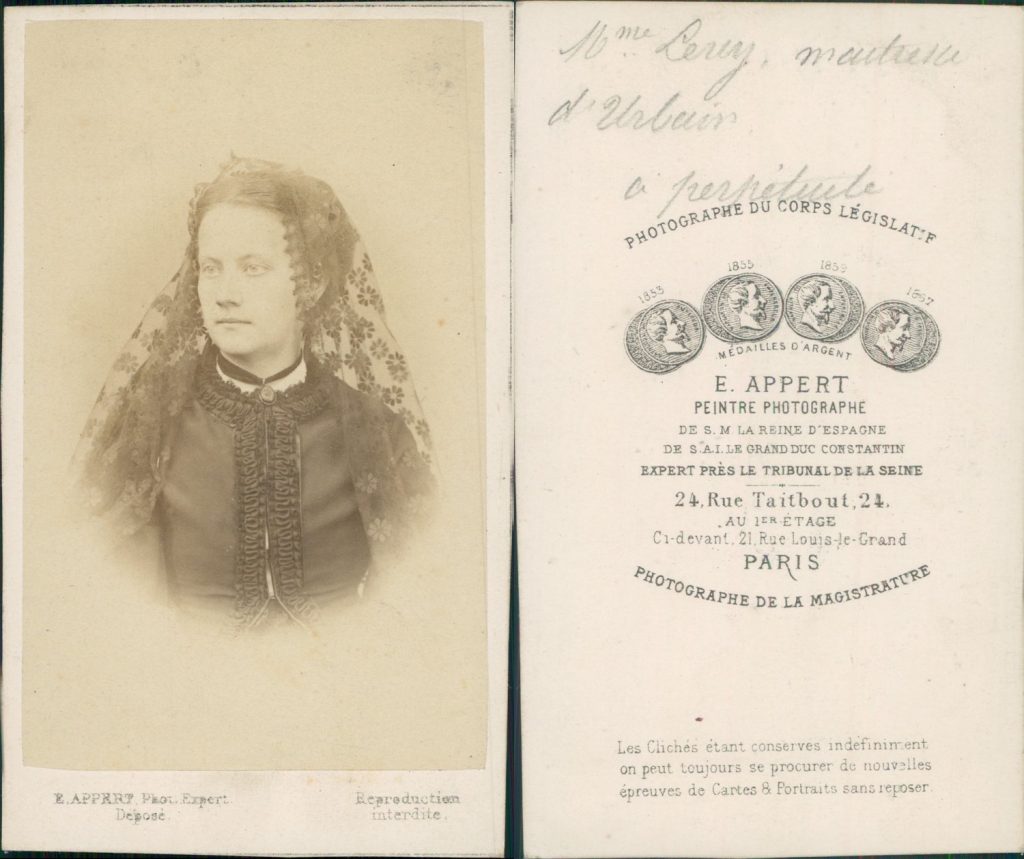 E. APPERT, Phot. Expert.
Déposé.
Reproduction
interdite.
Mme Leroy, maitresse
d'Urbain
a perpétuité
PHOTOGRAPHE DU CORPS LÉGISLATIF
1853 1855 1859 1867
MÉDAILLES D'ARGENT
E. APPERT
PEINTRE PHOTOGRAPHE
DE S. M. LA REINE D'ESPAGNE
DE S.A.I. LE GRAND DUC CONSTANTIN
EXPERT PRÈS LE TRIBUNAL DE LA SEINE
24, Rue Taitbout, 24.
AU 1ER ÉTAGE
Ci-devant, 21, Rue Louis-le-Grand
PARIS
PHOTOGRAPHE DE LA MAGISTRATURE
Les Clichés étant conservés indéfiniment
on peut toujours se procurer de nouvelles
épreuves de Cartes & Portraits sans reposer.